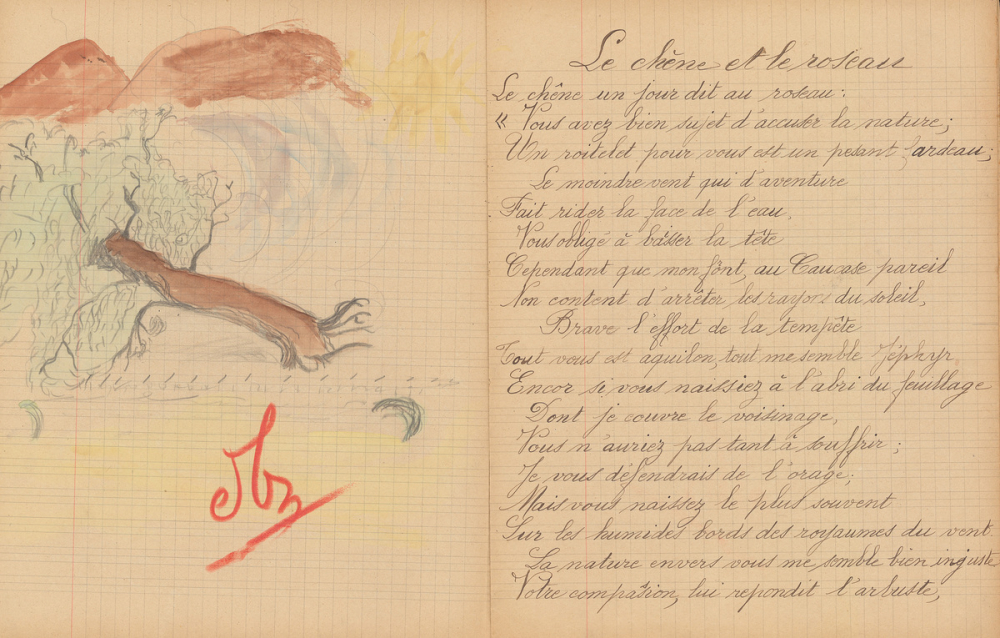 Tbn
Le chêne et le roseau
Le chêne un jour dit au roseau :
« Vous avez bien sujet d'accuser la nature ;
Un roitelet pour vous est un pesant fardeau ;
Le moindre vent qui d'aventure
Fait rider la face de l'eau,
Vous oblige à baisser la tête
Cependant que mon front, au Caucase pareil
Non content d'arrêter les rayons du soleil,
Brave l'effort de la tempête
Tout vous est aquilon, tout me semble zéphyr
Encor si vous naissiez à l'abri du feuillage
Dont je couvre le voisinage,
Vous n'auriez pas tant à souffrir ;
Je vous défendrais de l'orage ;
Mais vous naissez le plus souvent
Sur les humides bords des royaumes du vent
La nature envers vous me semble bien injuste
Votre compassion, lui repondit l'arbuste,